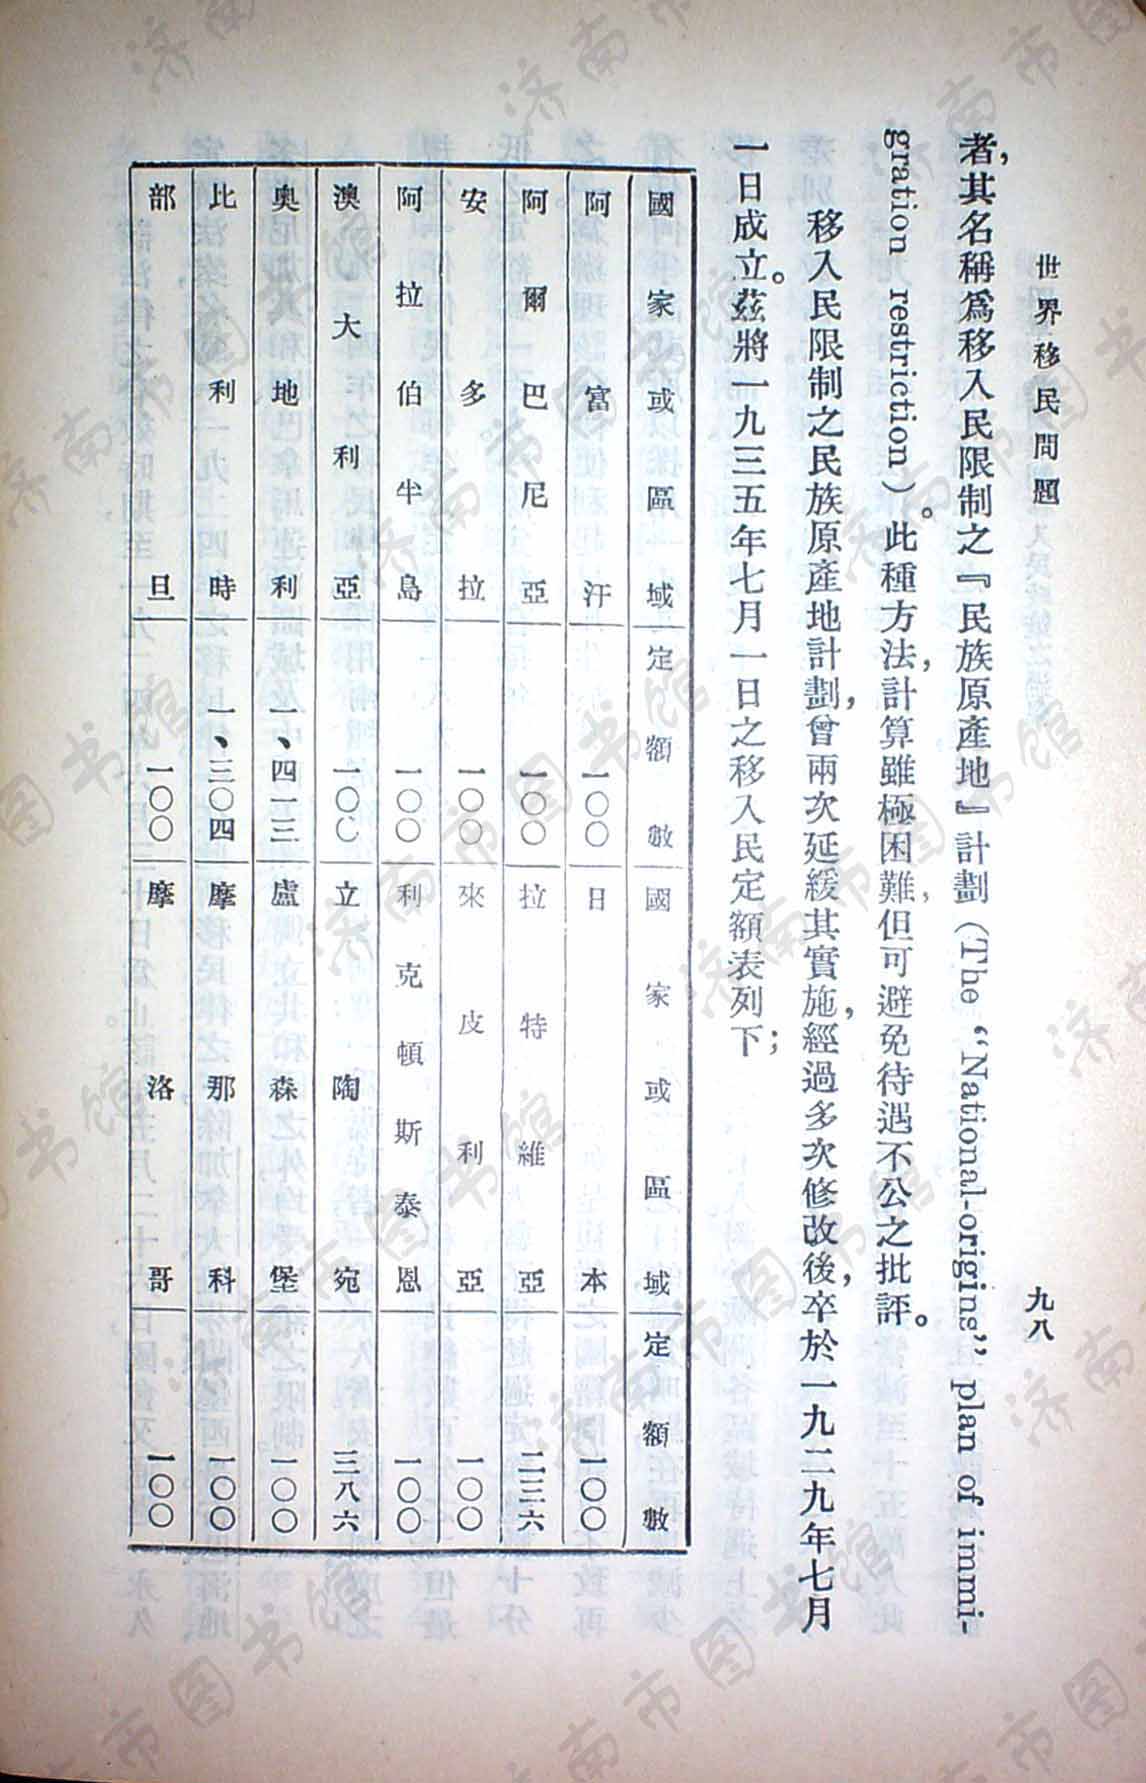 世界移民問題
九八
者，其名稱爲移入民限制之『民族原產地』計劃(The “National-origins” plan of immi-
gration restriction)。此種方法，計算雖極困難，但可避免待遇不公之批評。
移入民限制之民族原產地計劃，曾兩次延緩其實施，經過多次修改後，卒於一九二九年七月
一日成立。茲將一九三五年七月一日之移入民定額表列下；
國家或區域 定額數 國家或區域 定額數
阿富汗 一〇〇 日本 一〇〇
阿爾巴尼亞 一〇〇 拉特維亞 二三六
安多拉 一〇〇 來皮利亞 一〇〇
阿拉伯半島 一〇〇 利克頓斯泰恩 一〇〇
澳大利亞 一〇〇 立陶宛 三八六
奧地利 一、四一三 盧森堡 一〇〇
比利時 一、三〇四 摩那科 一〇〇
部旦 一〇〇 摩洛哥 一〇〇
济南市图书馆